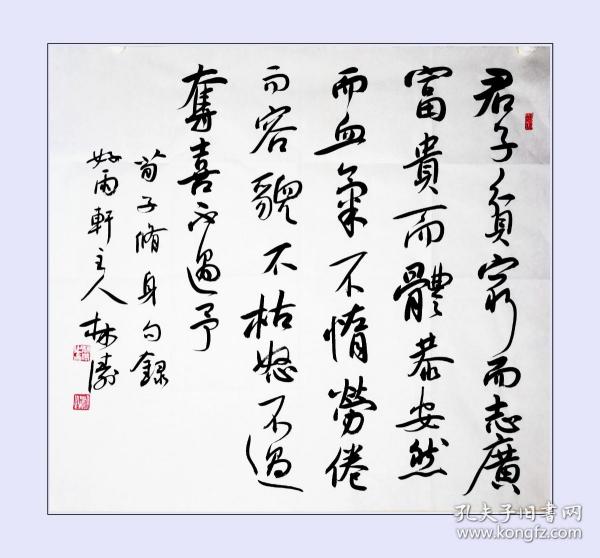 君子貧窮而志廣
富貴而體恭安然
而血氣不惰勞倦
而容貌不枯怒不過
奪喜不過予
荀子脩身句錄
好雨軒主人林濤
孔夫子旧书网
www.kongfz.com